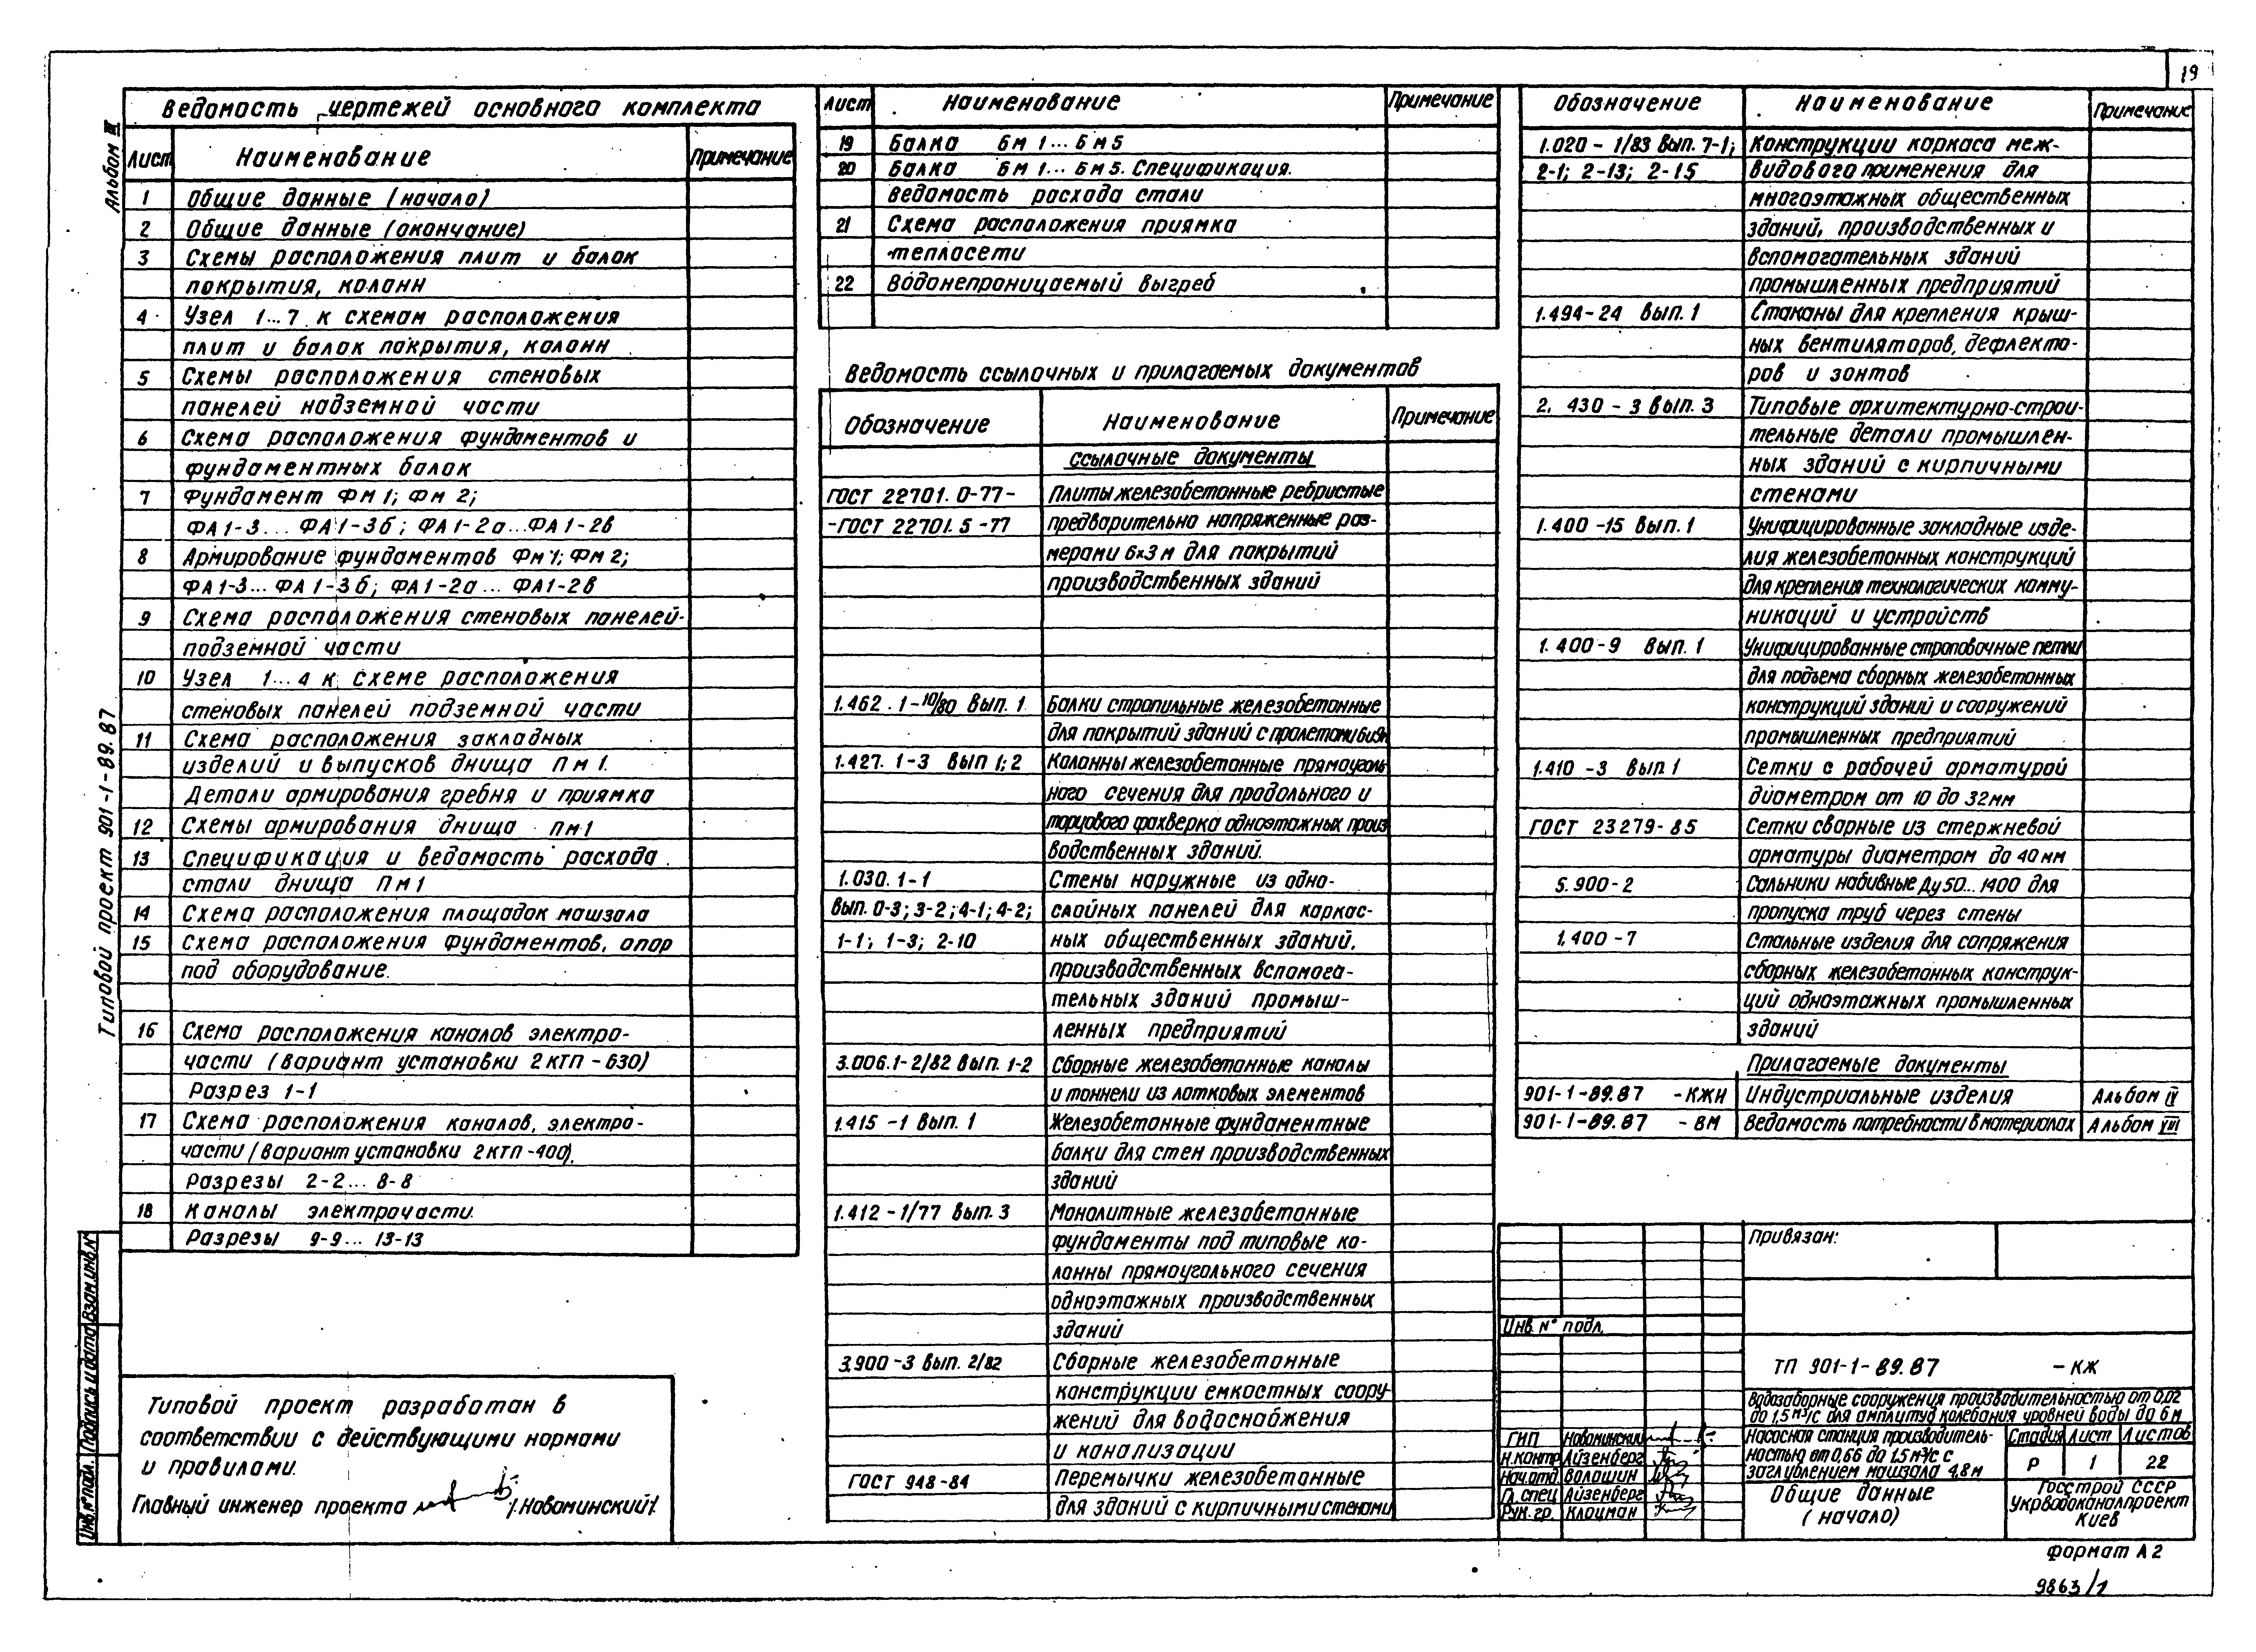 19
Альбом III
Типовой проект 901-1-89.87
Ведомость чертежей основного комплекта
Лист Наименование Примечание
1 Общие данные (начало)
2 Общие данные (окончание)
3 Схемы расположения плит и балок
покрытия, колонн
4 Узел 1...7 к схемам расположения
плит и балок покрытия, колонн
5 Схемы расположения стеновых
панелей надземной части
6 Схема расположения фундаментов и
фундаментных балок
7 Фундамент Фм 1; Фм 2;
ФА1-3... ФА1-3б; ФА1-2а...ФА1-2в
8 Армирование фундаментов Фм 1; Фм 2;
ФА1-3... ФА1-3б; ФА1-2а... ФА1-2в
9 Схема расположения стеновых панелей
подземной части
10 Узел 1...4 к схеме расположения
стеновых панелей подземной части
11 Схема расположения закладных
изделий и выпусков днища Пм1.
Детали армирования гребня и приямка
12 Схемы армирования днища Пм1
13 Спецификация и ведомость расхода
стали днища Пм1
14 Схема расположения площадок машзала
15 Схема расположения фундаментов, опор
под оборудование.
16 Схема расположения каналов электро-
части (вариант установки 2КТП-630)
Разрез 1-1
17 Схема расположения каналов, электро-
части (вариант установки 2КТП-400).
Разрезы 2-2... 8-8
18 Каналы электрочасти.
Разрезы 9-9... 13-13
Типовой проект разработан в
соответствии с действующими нормами
и правилами.
Главный инженер проекта /.Новоминский/.
Взам.инв.№
Подпись и дата
Инв.№ подл.
Лист Наименование Примечание
19 Балка Бм 1... Бм5
20 Балка Бм 1... Бм5. Спецификация.
Ведомость расхода стали
21 Схема расположения приямка
теплосети
22 Водонепроницаемый выгреб
Ведомость ссылочных и прилагаемых документов
Обозначение Наименование Примечание
Ссылочные документы
ГОСТ 22701.0-77- Плиты железобетонные ребристые
-ГОСТ 22701.5-77 предварительно напряженные раз-
мерами 6х3м для покрытий
производственных зданий
1.462.1-10/80 Вып. 1 Балки стропильные железобетонные
для покрытий зданий с пролетами 6и9м
1.427.1-3 Вып 1; 2 Колонны железобетонные прямоуголь
ного сечения для продольного и
торцового фахверка одноэтажных произ
водственных зданий.
1.030.1-1 Стены наружные из одно-
вып. 0-3; 3-2; 4-1; 4-2; слойных панелей для каркас-
1-1; 1-3; 2-10 ных общественных зданий,
производственных вспомога-
тельных зданий промыш-
ленных предприятий
3.006.1-2/82 вып. 1-2 Сборные железобетонные каналы
и тоннели из лотковых элементов
1.415-1 вып. 1 Железобетонные фундаментные
балки для стен производственных
зданий
1.412-1/77 Вып. 3 Монолитные железобетонные
фундаменты под типовые ко-
лонны прямоугольного сечения
одноэтажных производственных
зданий
3.900-3 Вып. 2/82 Сборные железобетонные
конструкции емкостных соору-
жений для водоснабжения
и канализации
ГОСТ 948-84 Перемычки железобетонные
для зданий с кирпичными стенами
Обозначение Наименование Примечание
1.020-1/83 Вып. 7-1; Конструкции каркаса меж-
2-1; 2-13; 2-15 видового применения для
многоэтажных общественных
зданий, производственных и
вспомогательных зданий
промышленных предприятий
1.494-24 Вып. 1 Стаканы для крепления крыш-
ных вентиляторов, дефлекто-
ров и зонтов
2.430-3 Вып. 3 Типовые архитектурно-строи-
тельные детали промышлен-
ных зданий с кирпичными
стенами
1.400-15 Вып. 1 Унифицированные закладные изде-
лия железобетонных конструкций
для крепления технологических комму-
никаций и устройств
1.400-9 Вып. 1 Унифицированные строповочные петли
для подъема сборных железобетонных
конструкций зданий и сооружений
промышленных предприятий
1.410-3 Вып 1 Сетки с рабочей арматурой
диаметром от 10 до 32мм
ГОСТ 23279-85 Сетки сварные из стержневой
арматуры диаметром до 40мм
5.900-2 Сальники набивные Ду50...1400 для
пропуска труб через стены
1.400-7 Стальные изделия для сопряжения
сборных железобетонных конструк-
ций одноэтажных промышленных
зданий
Прилагаемые документы
901-1-89.87 -КЖИ Индустриальные изделия Альбом IV
901-1-89.87 -ВМ Ведомость потребности в материалах Альбом VIII
Привязан:
Инв. № подл.
ТП 901-1-89.87 -КЖ
Водозаборные сооружения производительностью от 0,02
до 1,5м³/с для амплитуд колебания уровней воды до 6м
ГИП Новоминский
Н.контр Айзенберг
Нач.отд Волошин
Гл.спец Айзенберг
Рук.гр. Клоцман
Насосная станция производитель-
ностью от 0,66 до 1,5м³/с с
заглублением машзала 4,8м
Стадия Лист Листов
Р 1 22
Общие данные
(начало)
Госстрой СССР
Укрводоканалпроект
Киев
Формат А2
9863/1